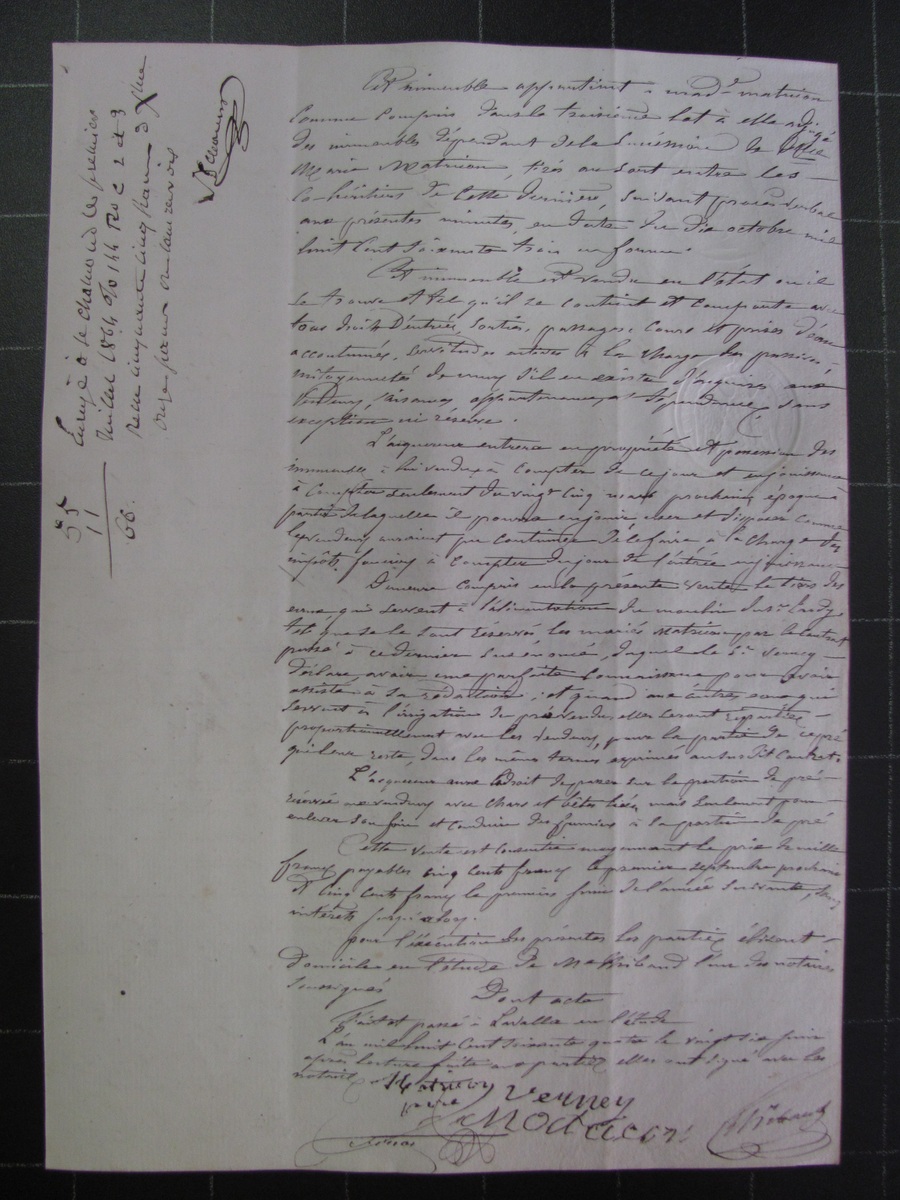 Cet immeuble appartient à mad.e matrion
Comme Compris dans le troisième lot à elle
des immeubles dépendant de la Succession de
Marie Matricon, tirés au sort entre les
Co-héritiers de Cette dernière, Suivant procès verbal
aux présentes minutes, en date du dix octobre mil
huit Cent soixante trois en forme.
Cet immeuble est vendu en l'état ou il
Se trouve et tel qu'il se Contient et Comporte avec
tous droits d'entrée, Sorties, passages, Cours et prises d'eau
accoutumés, Servitudes actives à la charge des passives
mitoyennetés de murs s'il en existe d'acquises aux
vendeurs, aisances appartenances et dépendances, sans
exception ni réserve.
L'acquereur entrera en propriété et possession des
immeubles à lui vendus à Compter de ce jour et en jouissance
à Compter Seulement du vingt Cinq mars prochain, époque à
partir de laquelle il pourra en jouir user et disposer comme
les vendeurs auraient pu Continuer de le faire, à la Charge des
impôts fonciers à Compter du jour de l'entrée en jouissance
Demeure Compris en la présente vente le tiers des
eaux qui servent à l'alimentation du moulin du Sr
tel que se le sont réservés les mariés Matricon par le Contrat
passé à ce dernier Susénoncé, duquel le Sr Verney
déclare avoir une parfaite Connaissance pour avoir
assisté à sa rédaction, et quand aux autres eaux qui
Servent à l'irrigation du pré vendu elles Seront réparties
proportionnellement avec les vendeurs, pour la partie de ce pré
qui leur reste, dans les mêmes termes exprimés au Susdit Contrat.
L'acquereur aura le droit de passer sur la portion de pré
réservée aux vendeurs avec chars et bêtes liées, mais Seulement pour
enlever Son foin et Conduire des fumiers à la partie de pré
Cette vente est Consentie moyennant le prix de mille
francs payables Cinq Cents francs le premier Septembre prochain
et Cinq Cents francs le premier juin de l'année Suivante, Sans
intérêts jusqu'alors.
pour l'exécution des présentes les parties élisent
domicile en l'étude de Me Thibaud l'un des notaires
Soussignés
Dont acte
Fait et passé à Lavalla en l'étude
L'an mil huit Cent Soixante quatre le vingt Six juin
après lecture faite aux parties elles ont Signé avec les
notaires
Matricon Verney
Thibaud
Enregé à St Chamond le premier
Juillet 1864 fo 144 Ro C 2 et 3
Reçu cinquante cinq francs Dxme
onze francs
55
11
66.